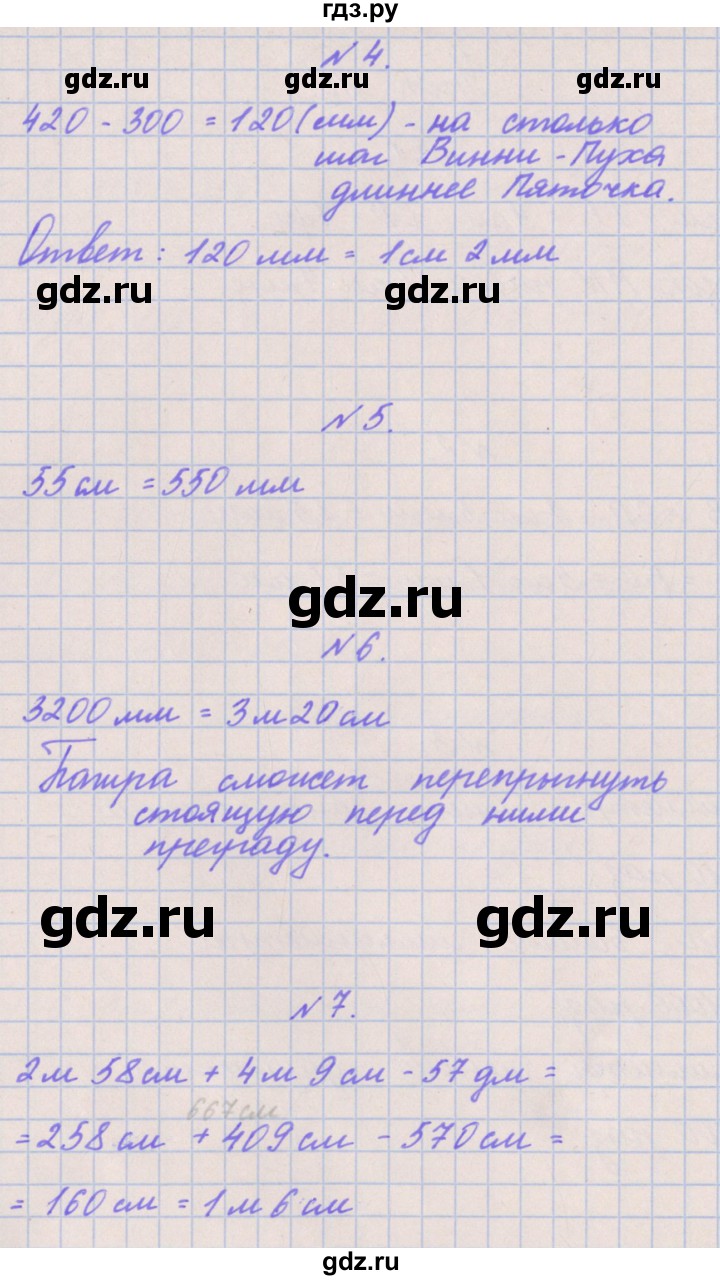 гдз.ру
№ 4.
gdz.ru gdz.ru gdz.ru
420 - 300 = 120 (мм) - на столько
шаг Винни-Пуха
длиннее Пяточка.
Ответ: 120 мм = 1 см 2 мм
gdz.ru gdz.ru
№ 5.
55 см = 550 мм
gdz.ru
№ 6.
3200 мм = 3 м 20 см
Багира сможет перепрыгнуть
стоящую перед ними
преграду.
gdz.ru gdz.ru
№ 7.
2 м 58 см + 4 м 9 см - 57 дм =
667 см
= 258 см + 409 см - 570 см =
= 160 см = 1 м 6 см
gdz.ru